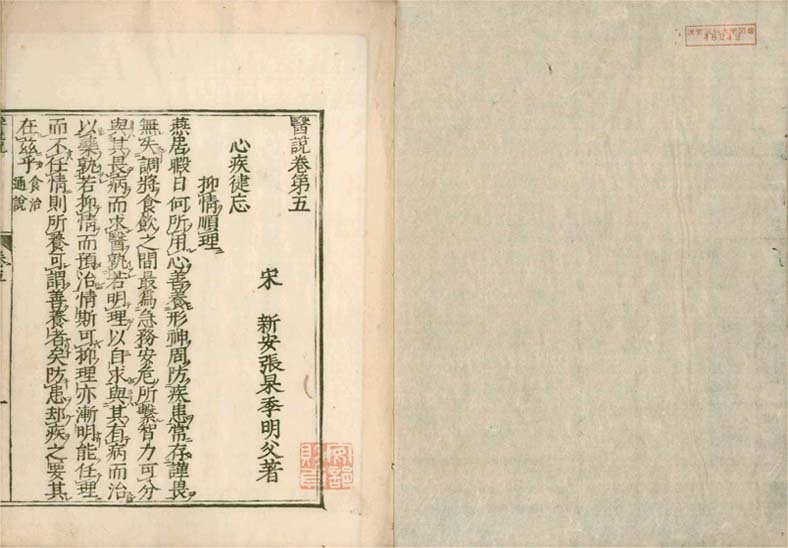 醫說卷第五
宋 新安張杲季明父著
心疾健忘
抑情順理
燕居暇日何所用心善養形神周防疾患常存謹畏
無失調將食飲之間最為急務安危所繫智力可分
與其畏病而求醫孰若明理以自求與其有病而治
以藥孰若抑情而預治情斯可抑理亦漸明能任理
而不任情則所養可謂善養者矣防患却疾之要其
在茲乎 食治通說
卷五
一
48242